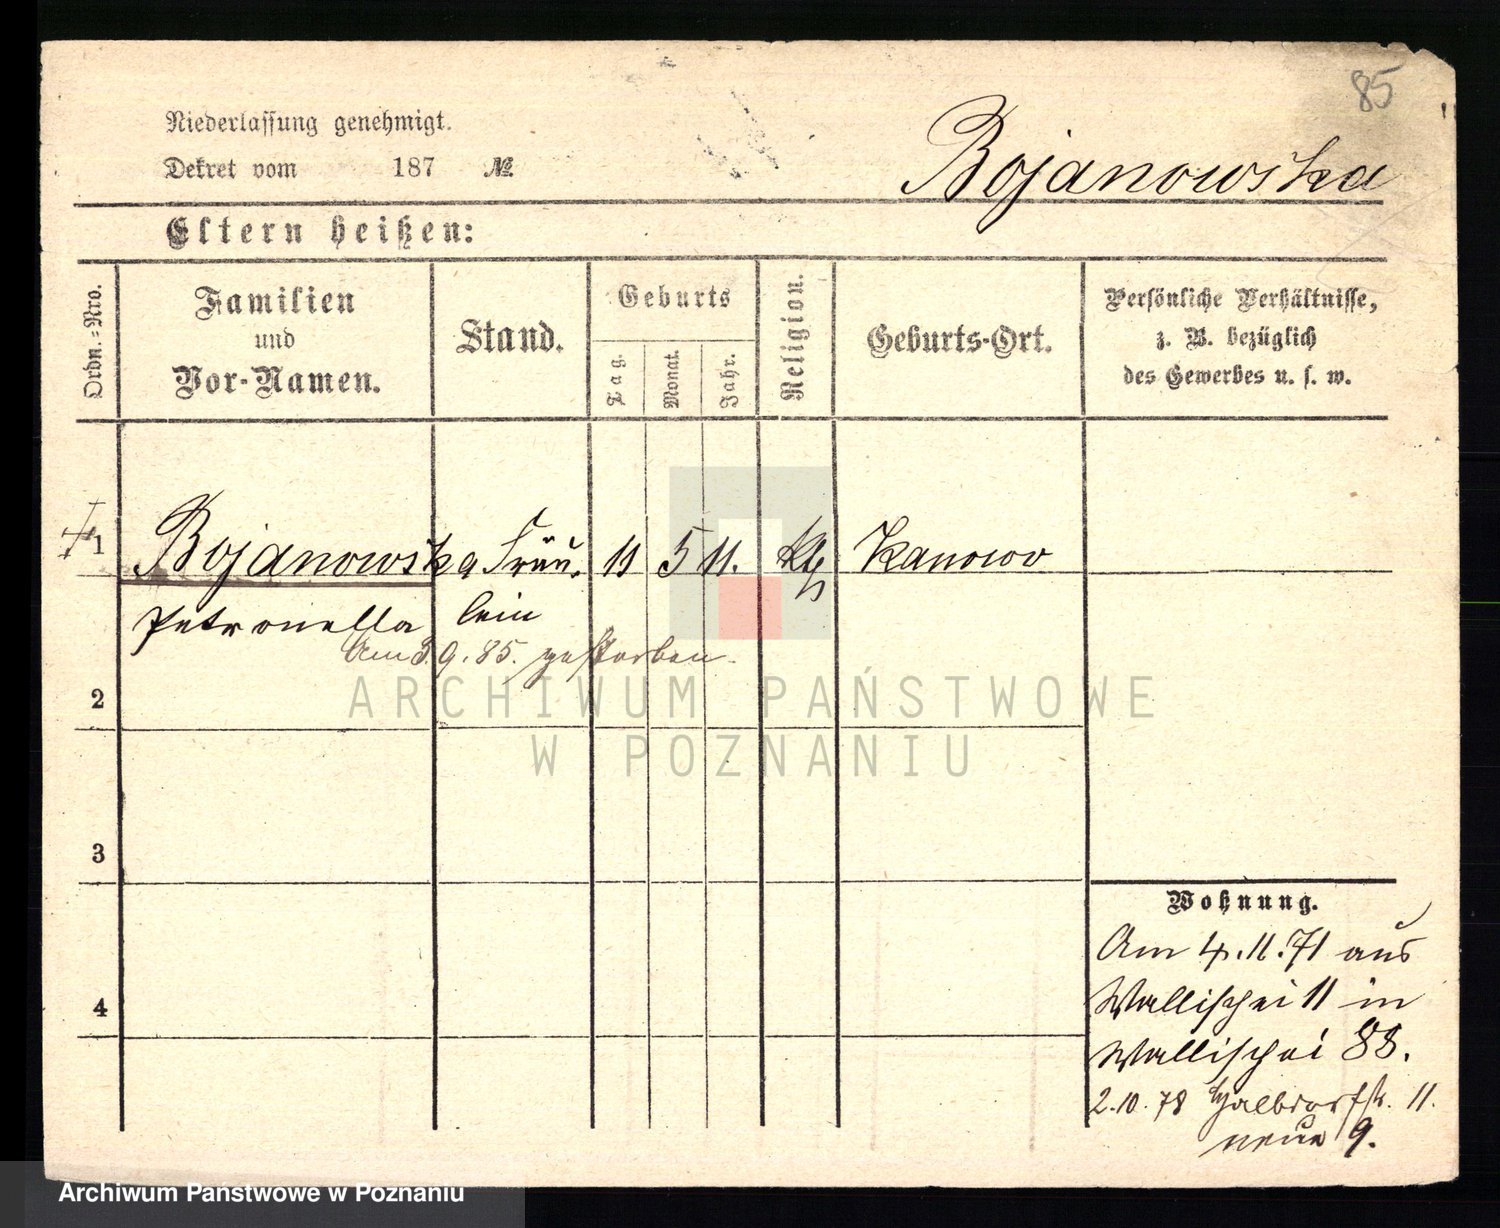 85
Niederlassung genehmigt.
Dekret vom 187 №
Bojanowska
Eltern heißen:
Ordn.-Nro.
Familien
und
Vor-Namen.
Stand.
Geburts
Tag.
Monat.
Jahr.
Religion.
Geburts-Ort.
Persönliche Verhältnisse,
z. B. bezüglich
des Gewerbes u. s. w.
1 Bojanowska Fräu- 11 5 11. kth Kanowo
Petronella lein
Am 3.9.85. gestorben.
2
3
4
Wohnung.
Am 4.11.71 aus
Wallischei 11 in
Wallischei 88.
2.10.78 Halbdorfstr. 11.
neue 9.
ARCHIWUM PAŃSTWOWE
W POZNANIU
Archiwum Państwowe w Poznaniu